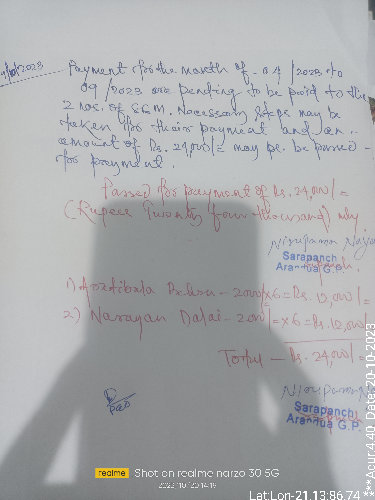 Payment for the month of - 04/2023 to
09/2023 are pending to be paid to the
2 nos. of S&M. Necessary steps may be
taken for their payment and an
amount of Rs. 24,000/= may pl. be passed
for payment.
Passed for payment of Rs. 24,000/=
(Rupees Twenty four thousand) only
Nirupama
Sarapanch
G.P.
1) - 2000/×6 = Rs. 12,000/=
2) Narayan Dalai - 2000/=×6 = Rs. 12,000/=
Total - Rs. 24,000/=
Sarapanch
G.P.
realme Shot on realme narzo 30 5G
2023/10/20 14:19
Lat:Lon-21.13:86.74 ***Acur:4.40 Date:20-10-2023